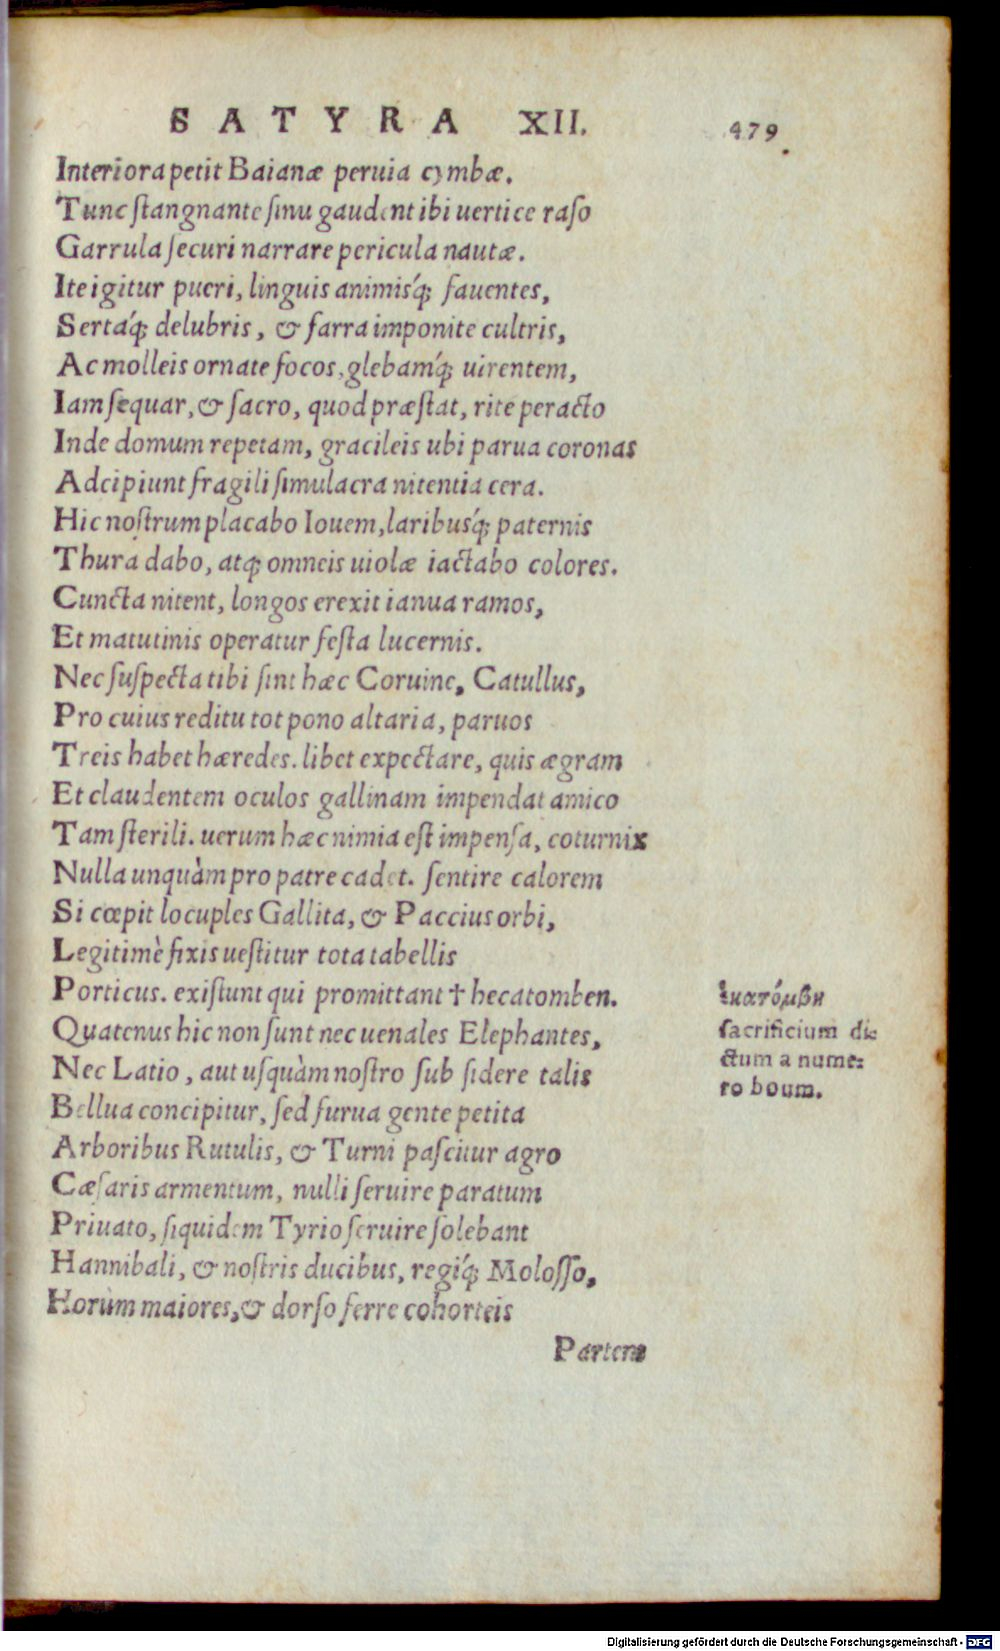 SATYRA XII. 479
Interiora petit Baianæ peruia cymbæ.
Tunc ſtangnante ſinu gaudent ibi uertice raſo
Garrula ſecuri narrare pericula nautæ.
Ite igitur pueri, linguis animisq́; fauentes,
Sertaq́; delubris, & farra imponite cultris,
Ac molleis ornate focos, glebamq́; uirentem,
Iam ſequar, & ſacro, quod præſtat, rite peracto
Inde domum repetam, gracileis ubi parua coronas
Adcipiunt fragili ſimulacra nitentia cera.
Hic noſtrum placabo Iouem, laribusq́; paternis
Thura dabo, atq; omneis uiolæ iactabo colores.
Cuncta nitent, longos erexit ianua ramos,
Et matutinis operatur feſta lucernis.
Nec ſuſpecta tibi ſint hæc Coruine, Catullus,
Pro cuius reditu tot pono altaria, paruos
Treis habet hæredes. libet expectare, quis ægram
Et claudentem oculos gallinam impendat amico
Tam ſterili. uerum hæc nimia eſt impenſa, coturnix
Nulla unquàm pro patre cadet. ſentire calorem
Si cœpit locuples Gallita, & Paccius orbi,
Legitimè fixis ueſtitur tota tabellis
Porticus. exiſtunt qui promittant † hecatomben.
Quatenus hic non ſunt nec uenales Elephantes,
Nec Latio, aut uſquàm noſtro ſub ſidere talis
Bellua concipitur, ſed furua gente petita
Arboribus Rutulis, & Turni paſcitur agro
Cæſaris armentum, nulli ſeruire paratum
Priuato, ſiquidem Tyrio ſeruire ſolebant
Hannibali, & noſtris ducibus, regiq́; Moloſſo,
Horùm maiores, & dorſo ferre cohorteis
Partem
ἑκατόμβη
ſacrificium di⸗
ctum a nume⸗
ro boum.
Digitalisierung gefördert durch die Deutsche Forschungsgemeinschaft - DFG